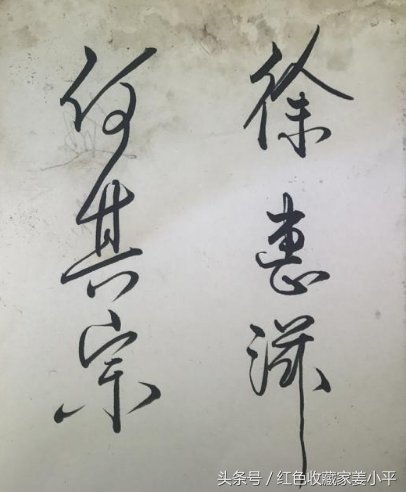 徐惠滋
何其宗
头条号 / 红色收藏家姜小平